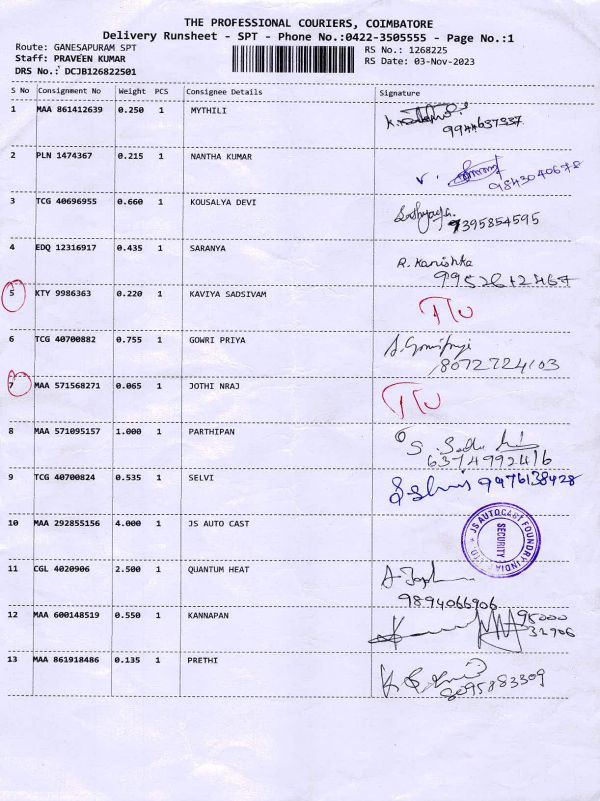 THE PROFESSIONAL COURIERS, COIMBATORE
Delivery Runsheet - SPT - Phone No.:0422-3505555 - Page No.:1
Route: GANESAPURAM SPT RS No.: 1268225
Staff: PRAVEEN KUMAR RS Date: 03-Nov-2023
DRS No.: DCJB126822501
S No Consignment No Weight PCS Consignee Details Signature
1 MAA 861412639 0.250 1 MYTHILI
9944637337
2 PLN 1474367 0.215 1 NANTHA KUMAR
9843040678
3 TCG 40696955 0.660 1 KOUSALYA DEVI
9395854595
4 EDQ 12316917 0.435 1 SARANYA R. Kanishka
5 KTY 9986363 0.220 1 KAVIYA SADSIVAM
6 TCG 40700882 0.755 1 GOWRI PRIYA
8072724103
7 MAA 571568271 0.065 1 JOTHI NRAJ
8 MAA 571095157 1.000 1 PARTHIPAN
6374992416
9 TCG 40700824 0.535 1 SELVI 9976138428
10 MAA 292855156 4.000 1 JS AUTO CAST JS AUTOCAST FOUNDRY INDIA SECURITY
11 CGL 4020906 2.500 1 QUANTUM HEAT
9894066906
12 MAA 600148519 0.550 1 KANNAPAN 95000
32906
13 MAA 861918486 0.135 1 PRETHI
8095883309